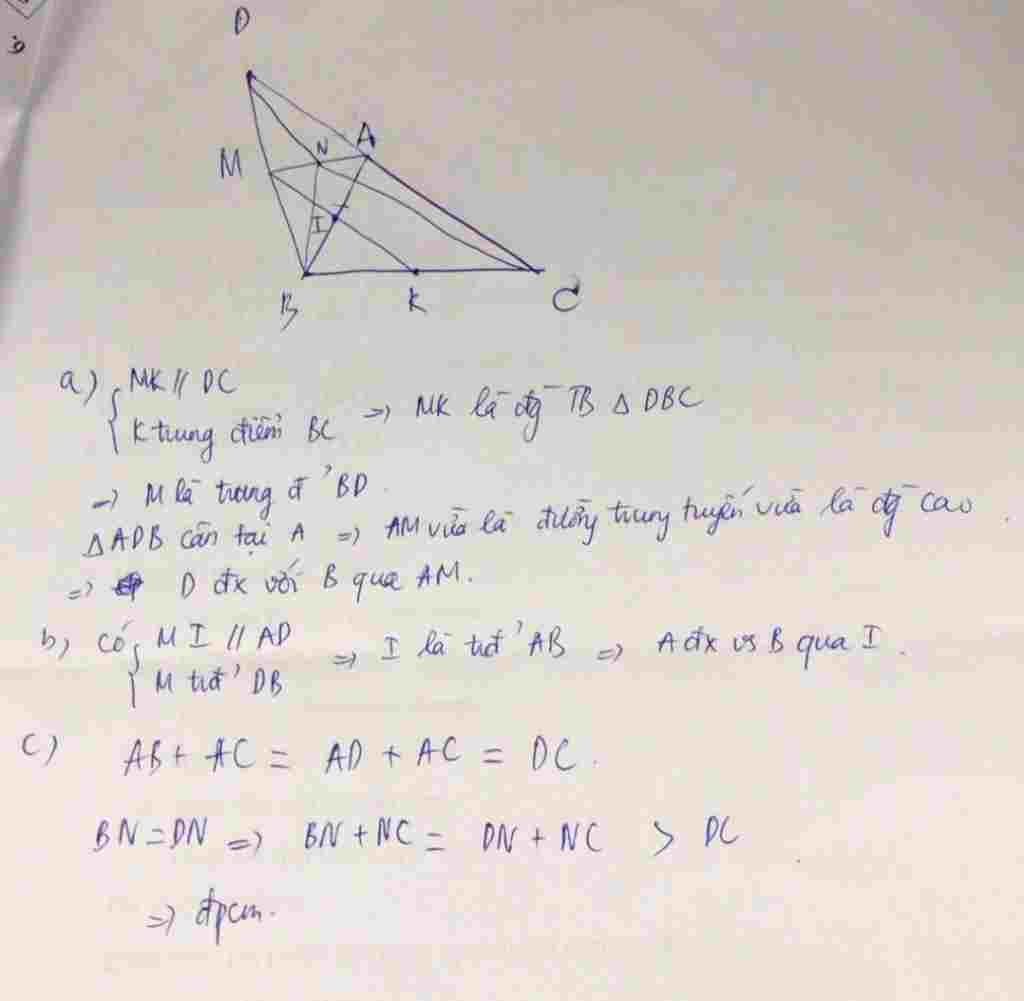 D
M
N
A
I
B
K
C
a) { MK // DC
K trung điểm BC => MK là đg TB Δ DBC
=> M là trung đ' BD.
Δ ADB cân tại A => AM vừa là đường trung tuyến vừa là đg cao.
=> D đx với B qua AM.
b) Có { M I // AD
M trđ' DB => I là trđ' AB => A đx vs B qua I.
c) AB + AC = AD + AC = DC.
BN = DN => BN + NC = DN + NC > DC
=> đpcm.